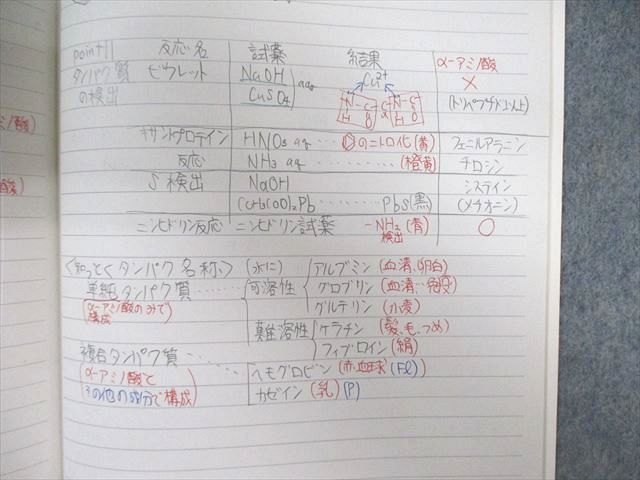 point11 反応名 試薬 結果 α-アミノ酸
タンパク質 ビウレット NaOH Cu2+ ×
の検出 CuSO4 aq (トリペプチド以上)
N-C N-C
H O H O
キサントプロテイン HNO3 aq … のニトロ化(黄) フェニルアラニン
反応 NH3 aq … (橙黄) チロシン
S検出 NaOH システイン
(CH3COO)2Pb … PbS(黒) (メチオニン)
ニンヒドリン反応 ニンヒドリン試薬 -NH2(青) ○
検出
<知っとくタンパク名称> (水に) アルブミン(血清、卵白)
単純タンパク質 …… 可溶性 グロブリン(血清…免疫)
(α-アミノ酸のみで グルテリン(小麦)
構成)
難溶性 ケラチン(髪、毛、つめ)
複合タンパク質 …… フィブロイン(絹)
(α-アミノ酸と ヘモグロビン(赤血球)(Fe)
その他の成分で構成) カゼイン(乳)(P)
ミノ酸)
酸)